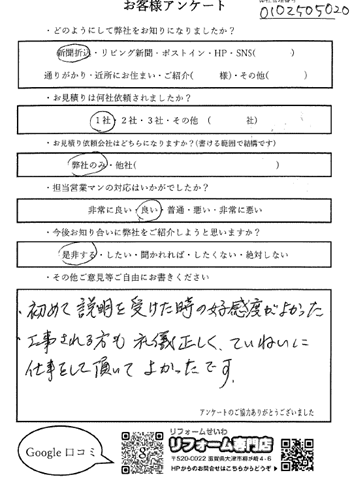 お客様アンケート
0102505020
・どのようにして弊社をお知りになりましたか？
新聞折込・リビング新聞・ポストイン・HP・SNS(　　　)
通りがかり・近所にお住まい・ご紹介(　　　様)・その他(　　　)
・お見積りは何社依頼されましたか？
1社・2社・3社・その他（　　　社)
・お見積り依頼会社はどちらになりますか？(書ける範囲で結構です)
弊社のみ・他社(　　　)
・担当営業マンの対応はいかがでしたか？
非常に良い・良い・普通・悪い・非常に悪い
・今後お知り合いに弊社をご紹介しようと思いますか？
是非する・したい・聞かれれば・したくない・絶対しない
・その他ご意見等ご自由にお書きください
・初めて説明を受けた時の好感度がよかった
・工事される方も礼儀正しく、ていねいに
仕事をして頂いてよかったです。
アンケートのご協力ありがとうございました
Google口コミ
リフォームせいわ
リフォーム専門店
〒520-0022 滋賀県大津市柳が崎4-6
HPからのお問合せはこちらからどうぞ